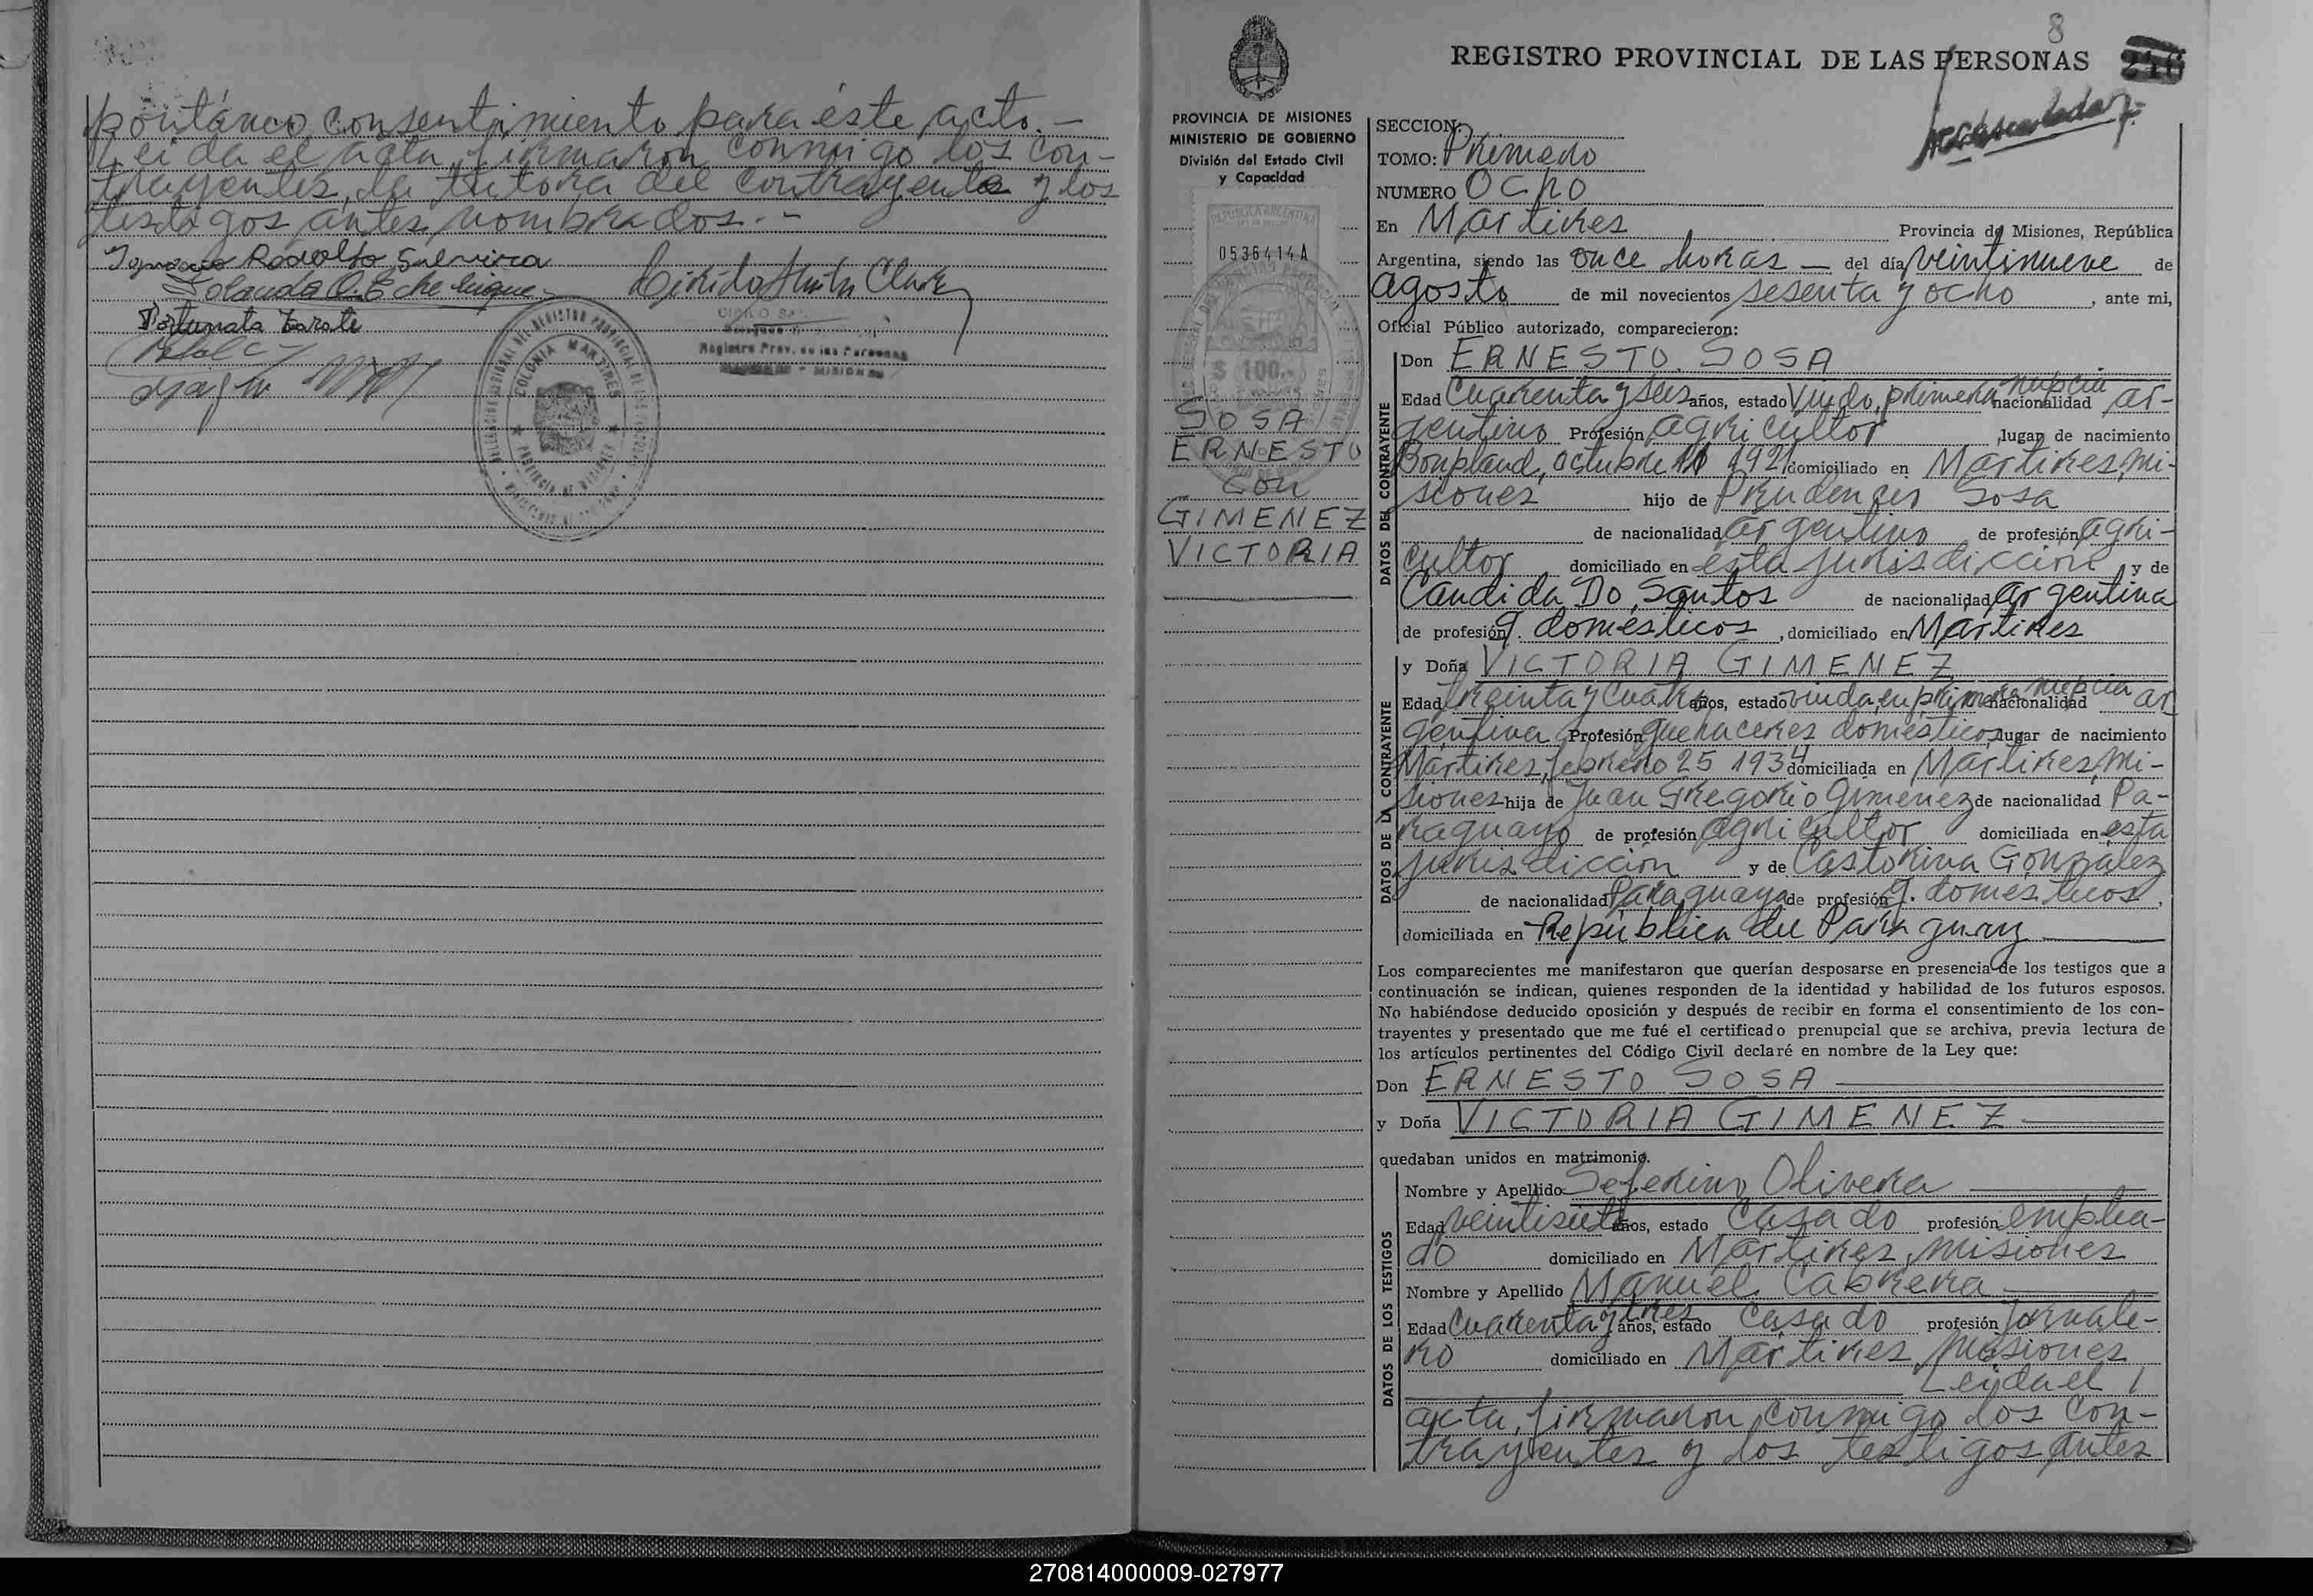 pontáneo consentimiento para éste acto.-
Leida el acta, firmaron conmigo los con-
trayentes, la tutora del contrayente y los
testigos antes nombrados.-
Rodolfo
Fortunata Zarate
COLONIA MARTIRES
PROVINCIA DE MISIONES
Registro Prov. de las Personas
MISIONES
8
REGISTRO PROVINCIAL DE LAS PERSONAS
PROVINCIA DE MISIONES
MINISTERIO DE GOBIERNO
División del Estado Civil
y Capacidad
REPUBLICA ARGENTINA
0536414A
$ 100.-
SOSA
ERNESTO
con
GIMENEZ
VICTORIA
SECCION:
TOMO: Primero
NUMERO Ocho
En Martires Provincia de Misiones, República
Argentina, siendo las once horas — del día veintinueve de
agosto de mil novecientos sesenta y ocho , ante mi,
Oficial Público autorizado, comparecieron:
DATOS DEL CONTRAYENTE
Don ERNESTO SOSA
Edad Cuarenta y seis años, estado Viudo, primera nupcia nacionalidad ar-
gentino Profesión agricultor ,lugar de nacimiento
Bonpland, octubre 1921 domiciliado en Martires, Mi-
siones hijo de Prudencio Sosa
de nacionalidad argentino de profesión agri-
cultor domiciliado en esta jurisdiccion , y de
Candida Do Santos de nacionalidad argentina
de profesión q. domésticos , domiciliado en Martires
DATOS DE LA CONTRAYENTE
y Doña VICTORIA GIMENEZ
Edad treinta y cuatro años, estado viuda, en primera nupcia nacionalidad ar
gentina Profesión quehaceres domesticos lugar de nacimiento
Martires, febrero 25 1934 domiciliada en Martires, Mi-
siones hija de Juan Gregorio Gimenez de nacionalidad Pa-
raguayo de profesión agricultor domiciliada en esta
jurisdiccion y de Castorina González
de nacionalidad Paraguaya de profesión q. domesticos,
domiciliada en República del Paraguay
Los comparecientes me manifestaron que querían desposarse en presencia de los testigos que a
continuación se indican, quienes responden de la identidad y habilidad de los futuros esposos.
No habiéndose deducido oposición y después de recibir en forma el consentimiento de los con-
trayentes y presentado que me fué el certificado prenupcial que se archiva, previa lectura de
los artículos pertinentes del Código Civil declaré en nombre de la Ley que:
Don ERNESTO SOSA
y Doña VICTORIA GIMENEZ
quedaban unidos en matrimonio.
DATOS DE LOS TESTIGOS
Nombre y Apellido Seferino Olivera
Edad veintisiete años, estado Casado profesión emplea-
do domiciliado en Martires, Misiones
Nombre y Apellido Manuel Cabrera
Edad Cuarenta y tres años, estado Casado profesión Jornale-
ro domiciliado en Martires, Misiones
Leida el
acta, firmaron conmigo los con-
trayentes y los testigos antes
270814000009-027977